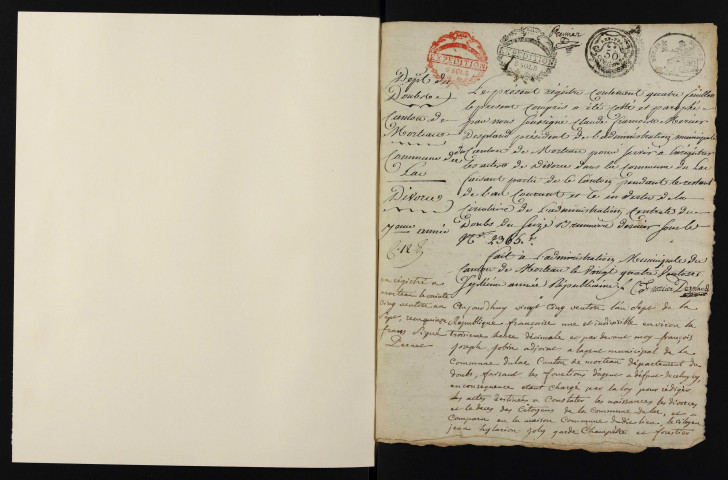 Premier
EXPEDITION
EXPEDITION
50
Dept du
Doubs
Canton de
Morteau
Commune du
Lac
Divorce
7eme année
Le present registre contenant quatre feuillets
le present compris a été cotté et paraphé
par nous soussigné claude françois Mercier
president de l'administration municipale
du Canton de Morteau pour servir à enregistrer
les actes de divorce dans la commune du Lac
faisant partie de ce Canton pendant le restant
de l'an courant et ce en vertu de la
circulaire de l'administration Centrale du
Doubs du seize Brumaire dernier sous le
N° 2365.
fait à l'administration Municipale du
Canton de Morteau le vingt quatre
septieme année Republicaine
enregistré a
morteau le
cinq ventose an
sept, reçu
francs signé
aujourdhuy vingt cinq ventose l'an sept de la
Republique françoise une et indivisible environ la
troisieme heure décimale et par devant moy françois
joseph jobin adjoint a lagent municipal de la
commune du lac Canton de morteau departement du
doubs, faisant les fonctions d'agent a defaut de
en consequence etant chargé par la loy pour rediger
les actes destinés a constater les naissances les divorces
et le deces des Citoyens de la commune du lac, est
comparu en la maison Commune dudit lieu, le citoyen
jean hylarion joly garde Champetre et forestier